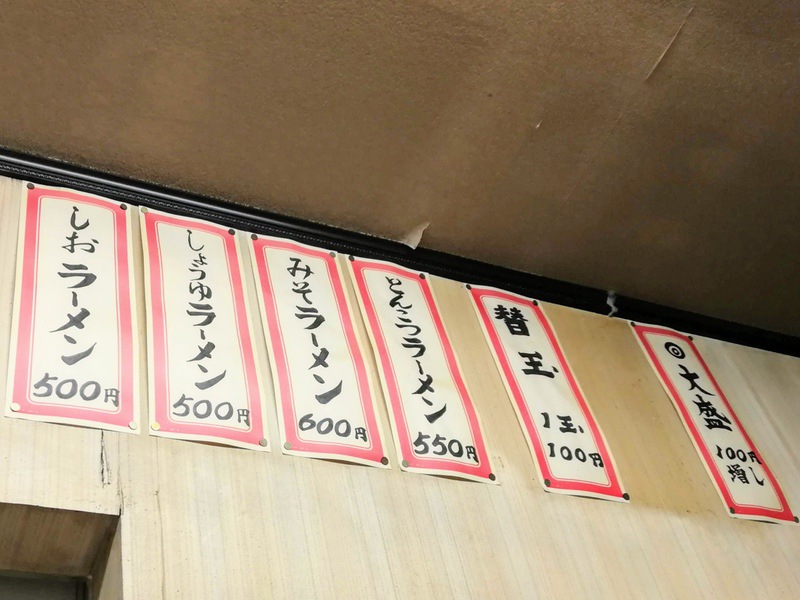 しおラーメン
500円
しょうゆラーメン
500円
みそラーメン
600円
とんこつラーメン
550円
替玉
1玉
100円
◎大盛
100円
増し